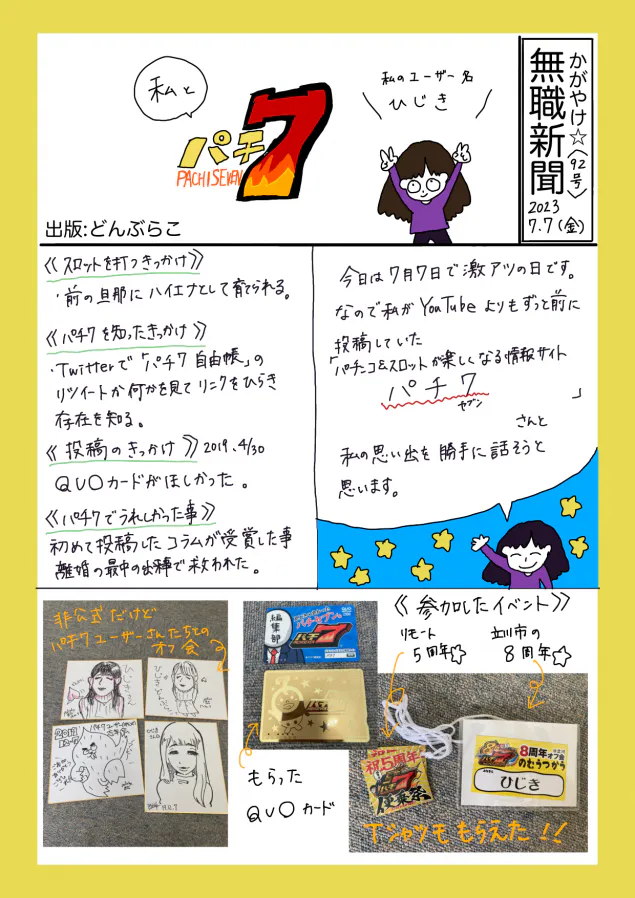 かがやけ☆
無職新聞
〈92号〉
2023
7.7(金)
私と
パチ7
PACHISEVEN
私のユーザー名
ひじき
出版:どんぶらこ
今日は7月7日で激アツの日です。
なので私がYouTubeよりもずっと前に
投稿していた
「パチンコ&スロットが楽しくなる情報サイト
パチ7
セブン
」
さんと
私の思い出を勝手に話そうと
思います。
《スロットを打つきっかけ》
・前の旦那にハイエナとして育てられる。
《パチ7を知ったきっかけ》
・Twitterで「パチ7自由帳」の
リツイートか何かを見てリンクをひらき
存在を知る。
《投稿のきっかけ》2019.4/30
QUOカードがほしかった。
《パチ7でうれしかった事》
初めて投稿したコラムが受賞した事
離婚の最中の出稼で救われた。
非公式だけど
パチ7ユーザーさんたちとの
オフ会
編集部
パチ7
もらった
QUOカード
《参加したイベント》
リモート
5周年☆
立川市の
8周年☆
祝5周年
8周年
オフ会
のむうつから
ひじき
Tシャツももらえた!!